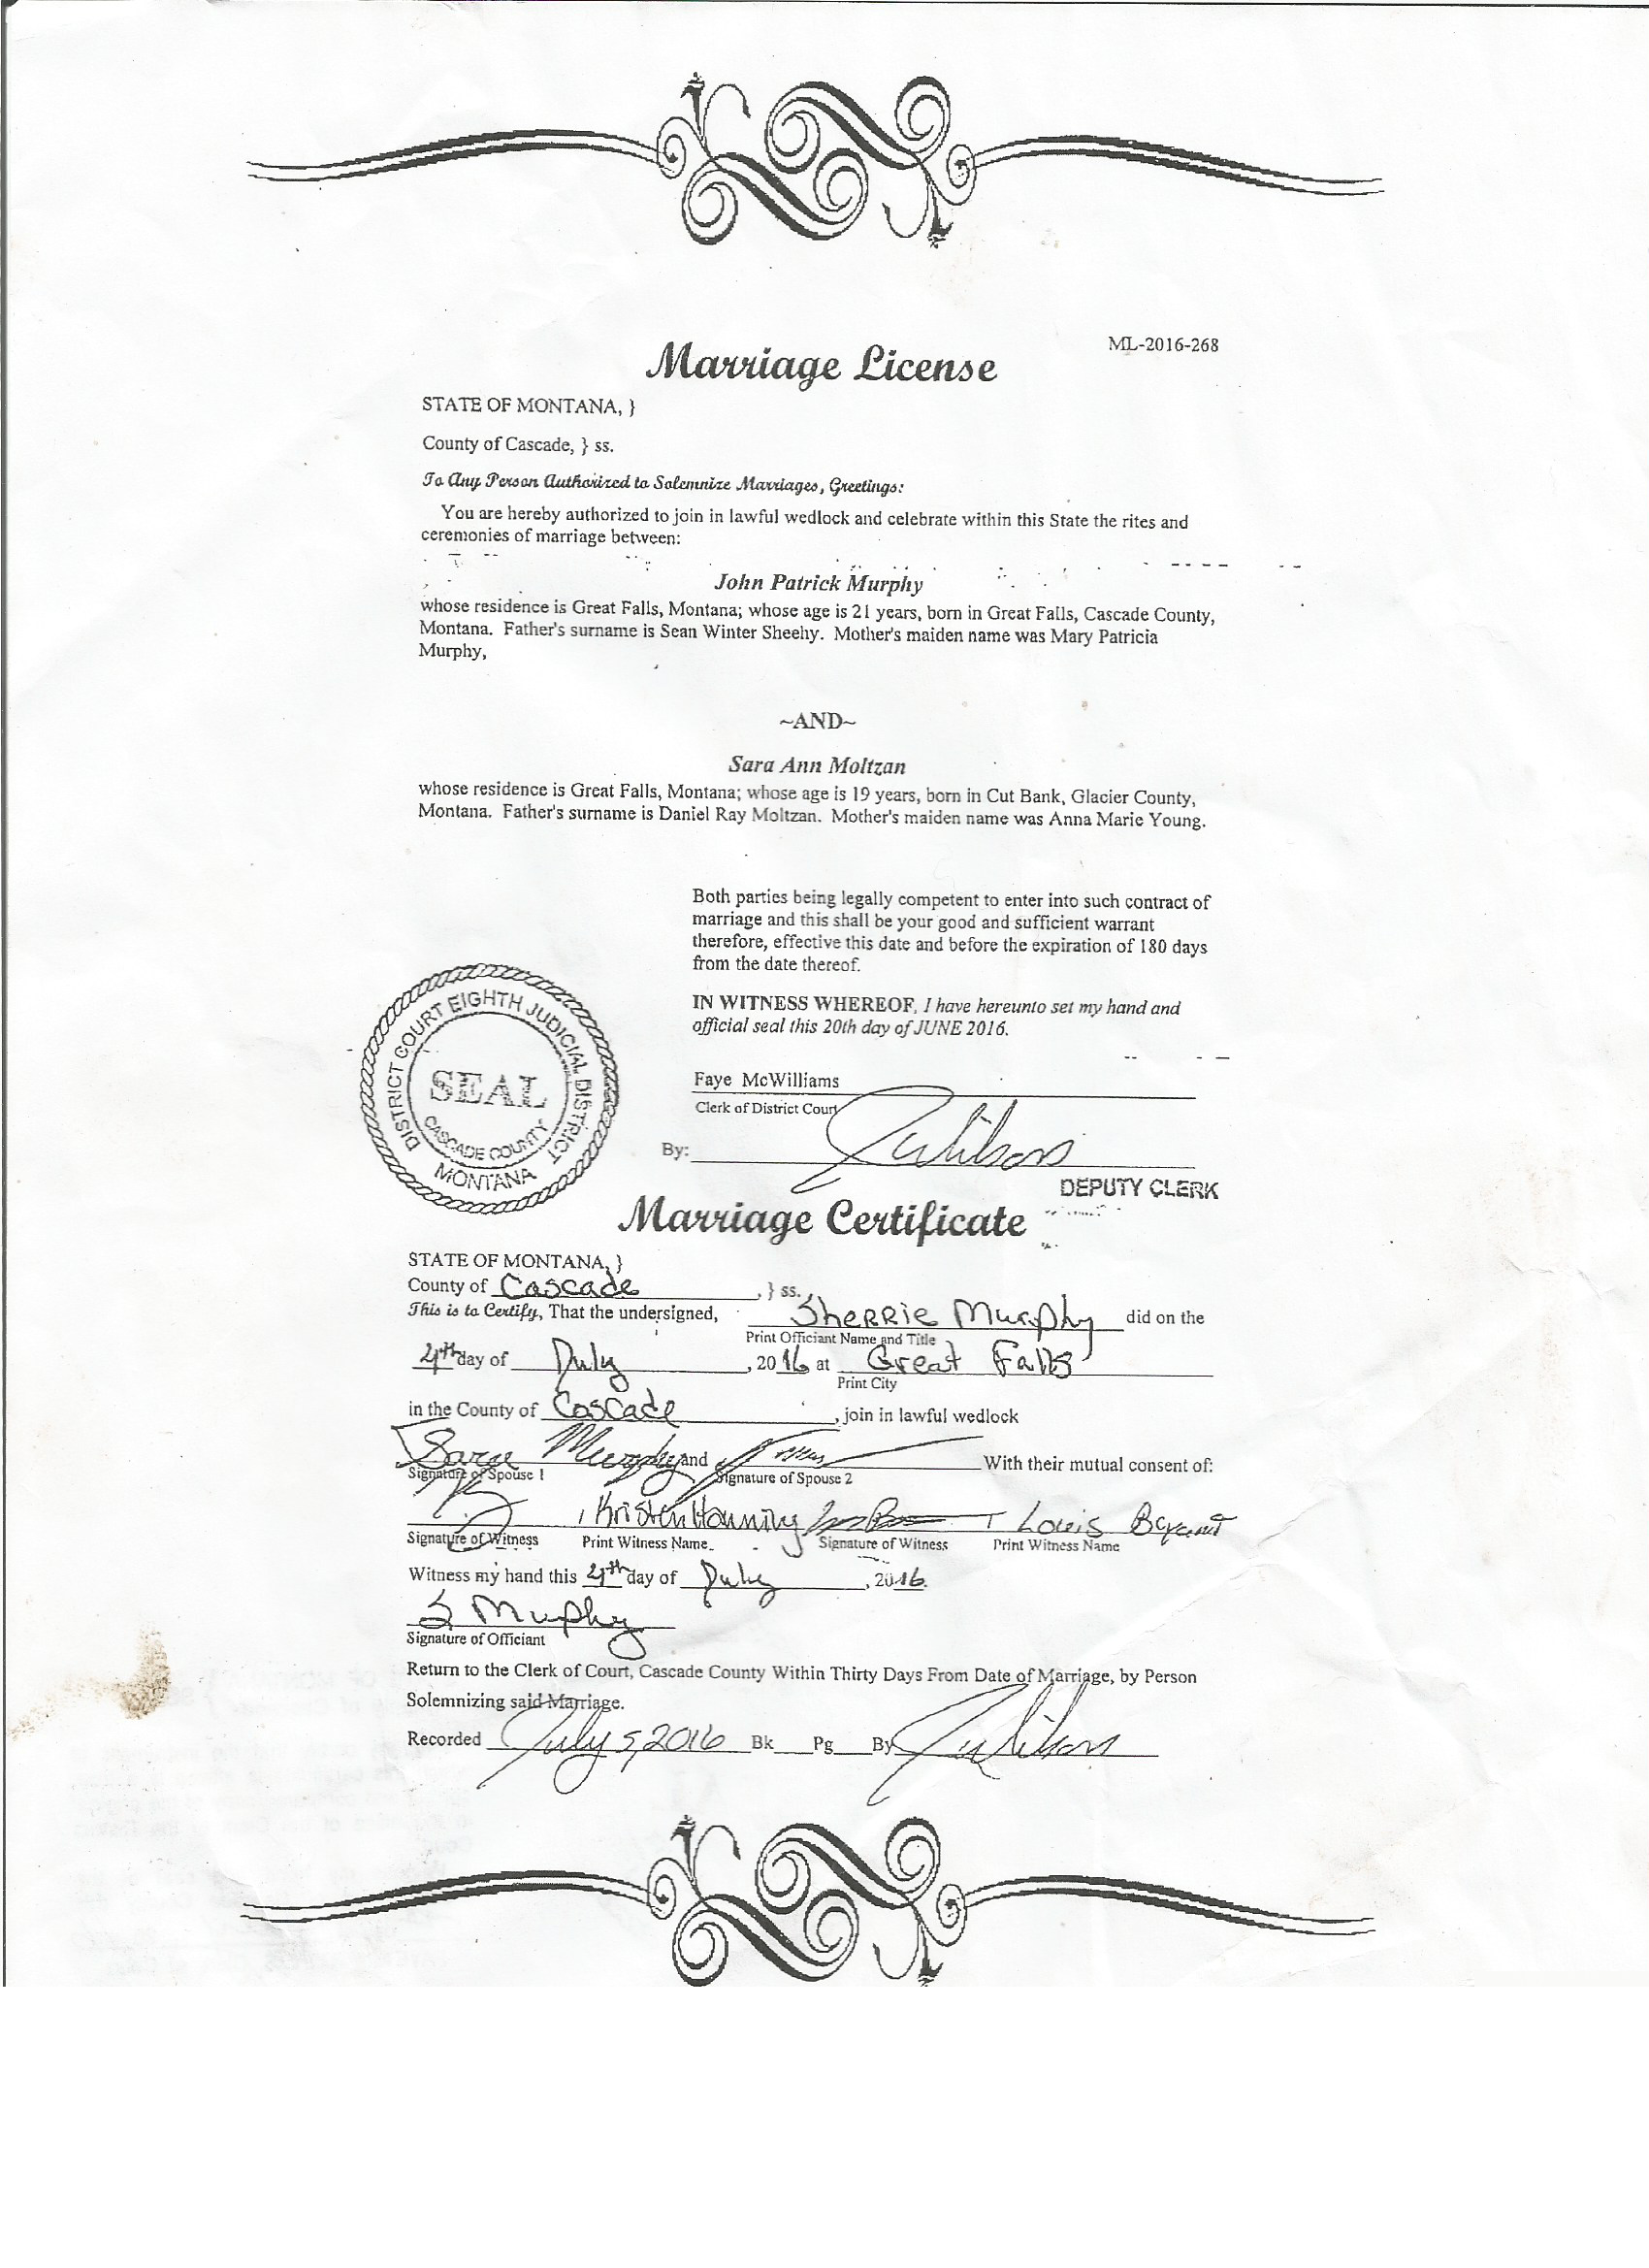 ML-2016-268
Marriage License
STATE OF MONTANA, }
County of Cascade, } ss.
To Any Person Authorized to Solemnize Marriages, Greetings:
You are hereby authorized to join in lawful wedlock and celebrate within this State the rites and
ceremonies of marriage between:
John Patrick Murphy
whose residence is Great Falls, Montana; whose age is 21 years, born in Great Falls, Cascade County,
Montana. Father's surname is Sean Winter Sheehy. Mother's maiden name was Mary Patricia
Murphy,
~AND~
Sara Ann Moltzan
whose residence is Great Falls, Montana; whose age is 19 years, born in Cut Bank, Glacier County,
Montana. Father's surname is Daniel Ray Moltzan. Mother's maiden name was Anna Marie Young.
Both parties being legally competent to enter into such contract of
marriage and this shall be your good and sufficient warrant
therefore, effective this date and before the expiration of 180 days
from the date thereof.
IN WITNESS WHEREOF, I have hereunto set my hand and
official seal this 20th day of JUNE 2016.
DISTRICT COURT EIGHTH JUDICIAL DISTRICT
SEAL
CASCADE COUNTY
MONTANA
Faye McWilliams
Clerk of District Court
By:
DEPUTY CLERK
Marriage Certificate
STATE OF MONTANA, }
County of Cascade, } ss.
This is to Certify, That the undersigned, Sherrie Murphy did on the
Print Officiant Name and Title
4th day of July, 2016 at Great Falls
Print City
in the County of Cascade, join in lawful wedlock
Sara Murphy and With their mutual consent of:
Signature of Spouse 1 Signature of Spouse 2
, Kristen Louis Bryant
Signature of Witness Print Witness Name Signature of Witness Print Witness Name
Witness my hand this 4th day of July, 2016.
S Murphy
Signature of Officiant
Return to the Clerk of Court, Cascade County Within Thirty Days From Date of Marriage, by Person
Solemnizing said Marriage.
Recorded July 5, 2016 Bk Pg By